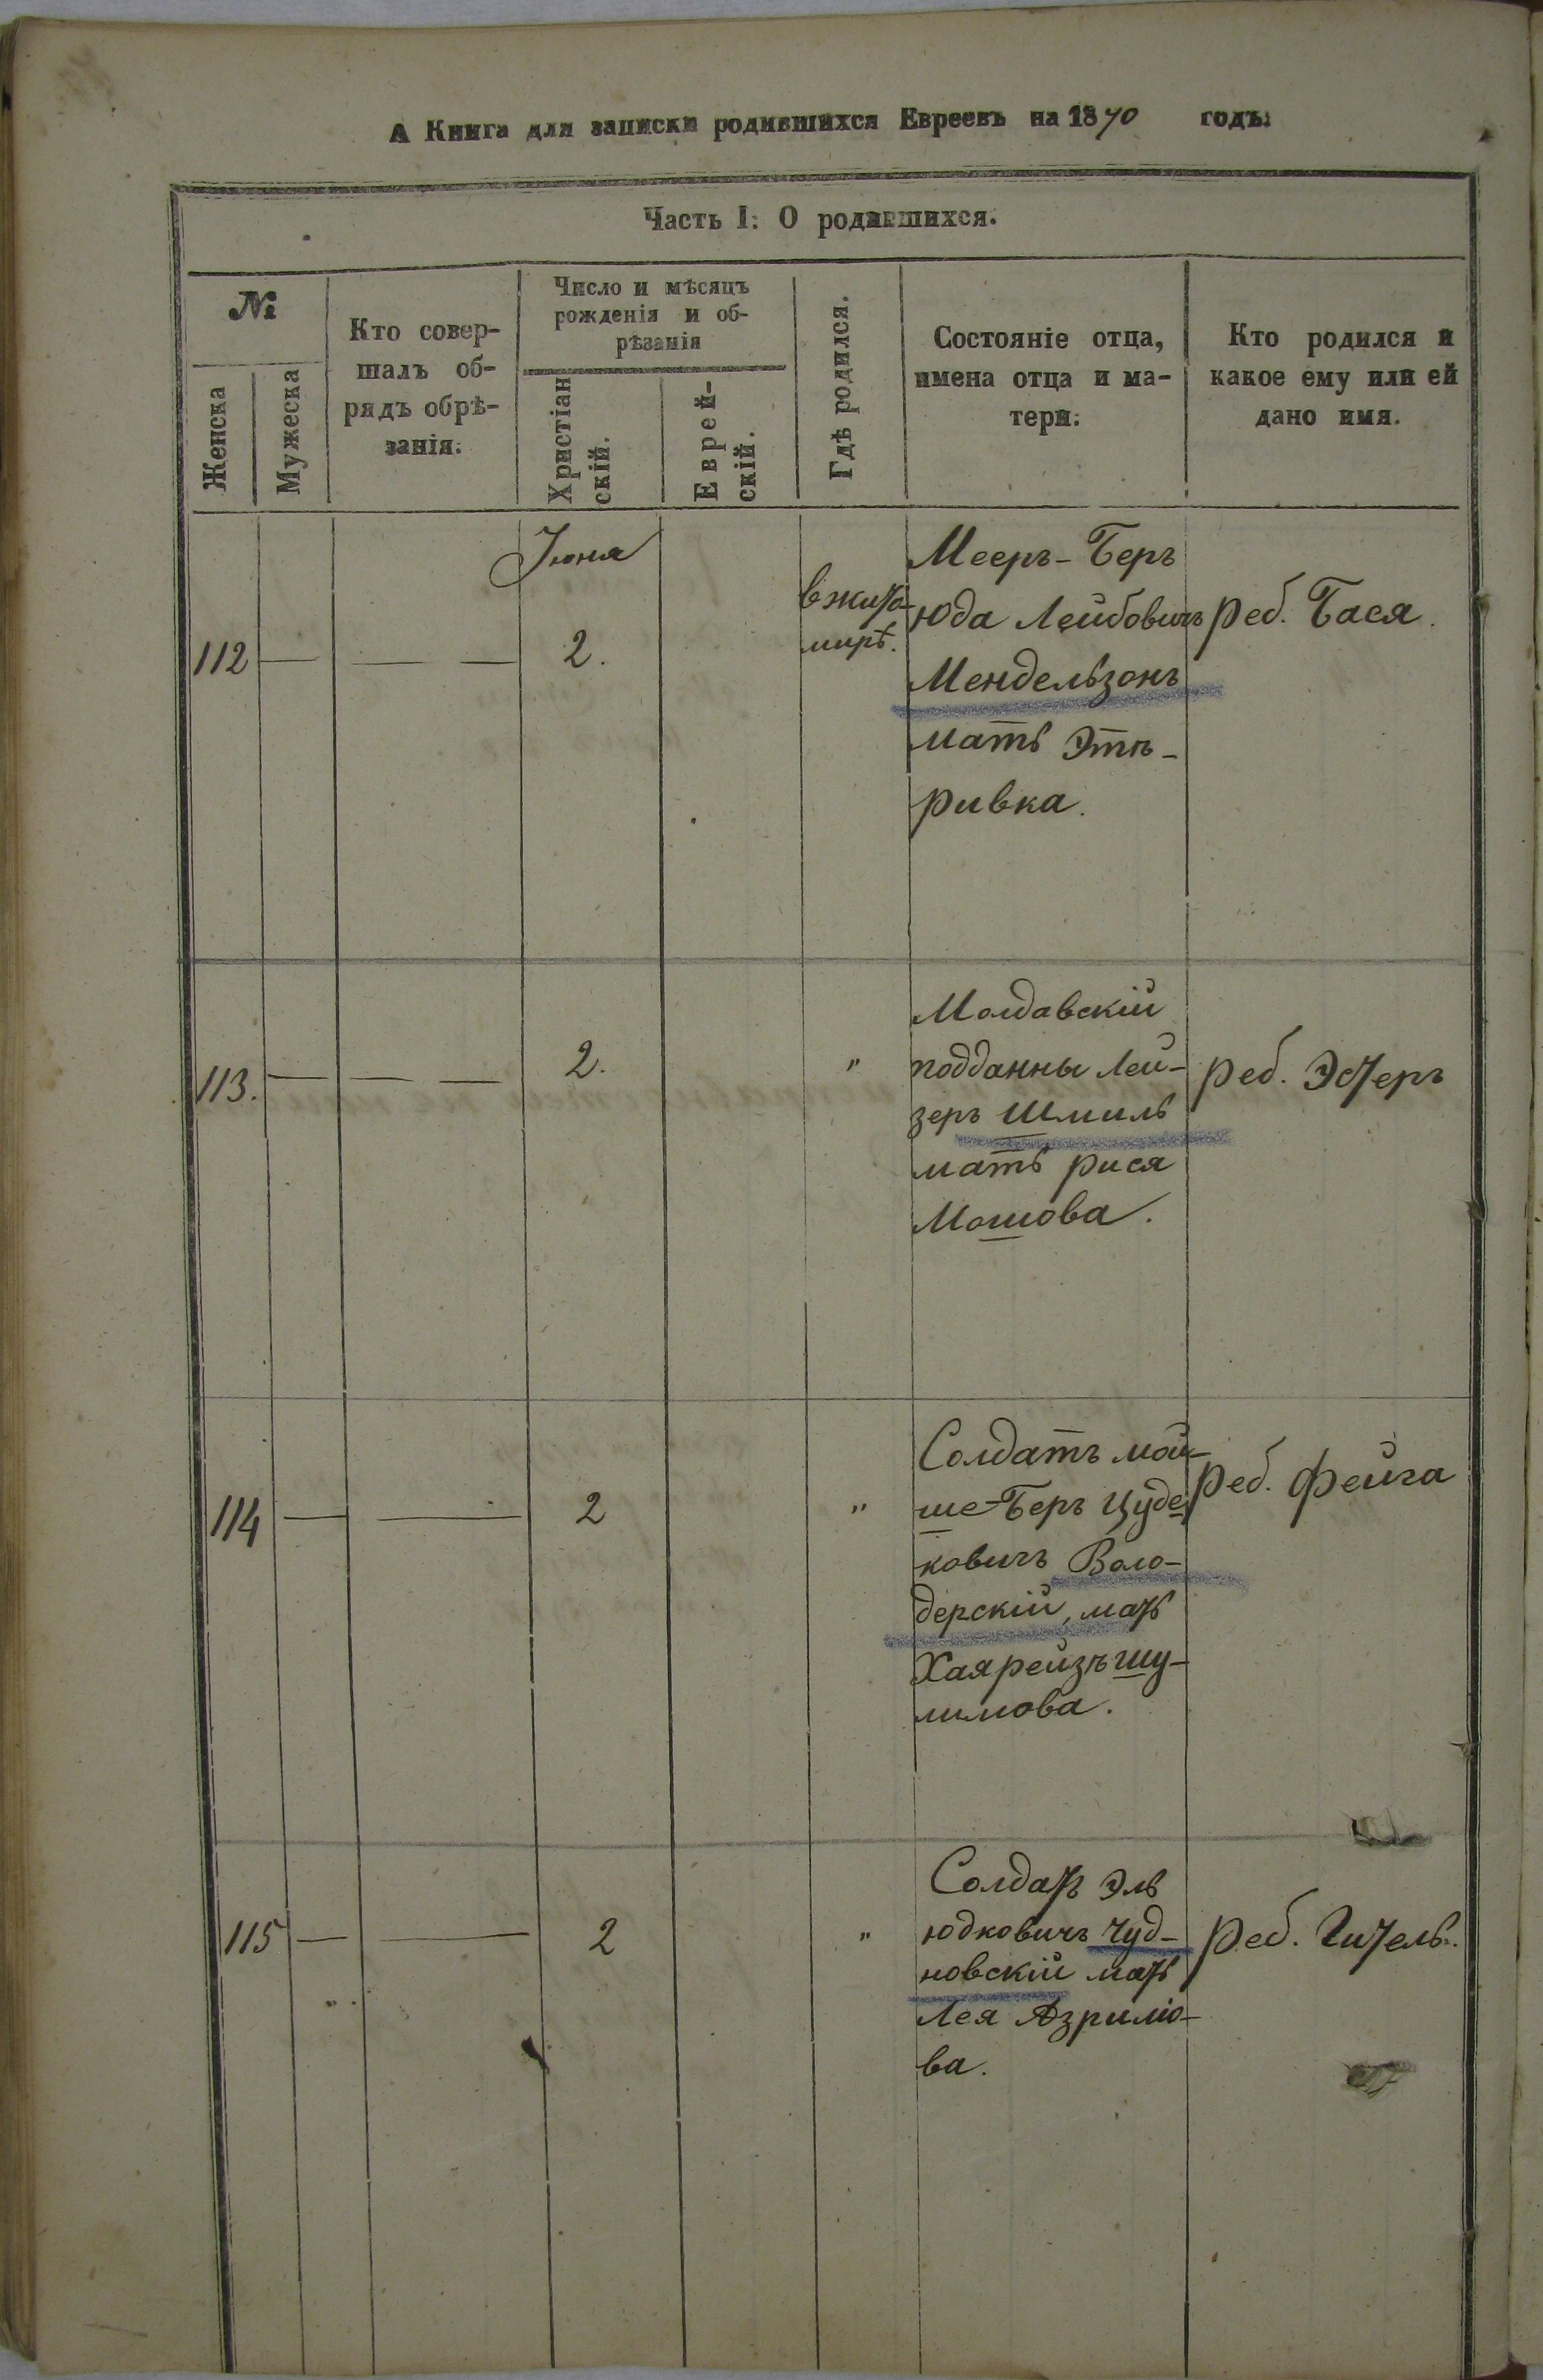 А Книга для записки родившихся Евреевъ на 1870 годъ:
Часть I: О родившихся.
№
Женска
Мужеска
Кто совер-
шалъ об-
рядъ обрѣ-
занія:
Число и мѣсяцъ
рожденія и об-
рѣзанія
Христіан
скій.
Еврей-
скій.
Гдѣ родился.
Состояніе отца,
имена отца и ма-
тери:
Кто родился и
какое ему или ей
дано имя.
Іюня
112 — — — 2.
в жито-
мирѣ.
Мееръ-Беръ
Юда Лейбовичъ
Мендельзонъ
мать Этъ-
ривка.
реб. Бася.
113. — — — 2. "
Молдавскій
подданны Лей-
зеръ Шмиль
мать рися
Мошова.
реб. Эстеръ
114 — — 2 "
Солдатъ мой-
ше-Беръ Цуде
ковичъ Воло-
дерскій, мать
Хаярейзъ шу-
лимова.
реб. фейга
115 — — 2 "
Солдатъ Эль
юдковичъ Чуд-
новскій мать
Лея Азрилю-
ва.
реб. Гитель.